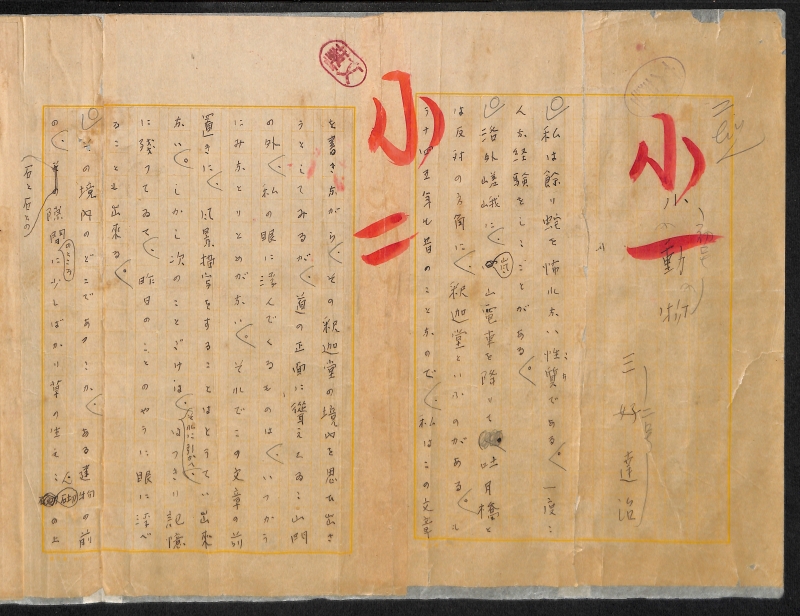 小一
小動物
三好達治
私は餘り蛇を怖れない性質である。一度こ
んな経験をしたことがある。
洛外嵯峨に、嵐山電車を降りて、渡月橋と
は反対の方角に、釈迦堂といふのがある。も
う十四五年も昔のことなので、私はこの文章
小二
を書きながら、その釈迦堂の境内を思ひ出さ
うとしてみるが、道の正面に聳えてゐる山門
の外、私の眼に浮んでくるものは、いつかう
にみなとりとめがない、それでこの文章の前
置きに、風景描写をすることはとうてい出来
ない。しかし次のことだけは、はつきり記憶
に残つてゐて、昨日のことのやうに眼に浮べ
ることも出来る。
その境内のどこであつたか、ある建物の前
の、隙間に少しばかり草の生えた の上
(石と石との
のところ